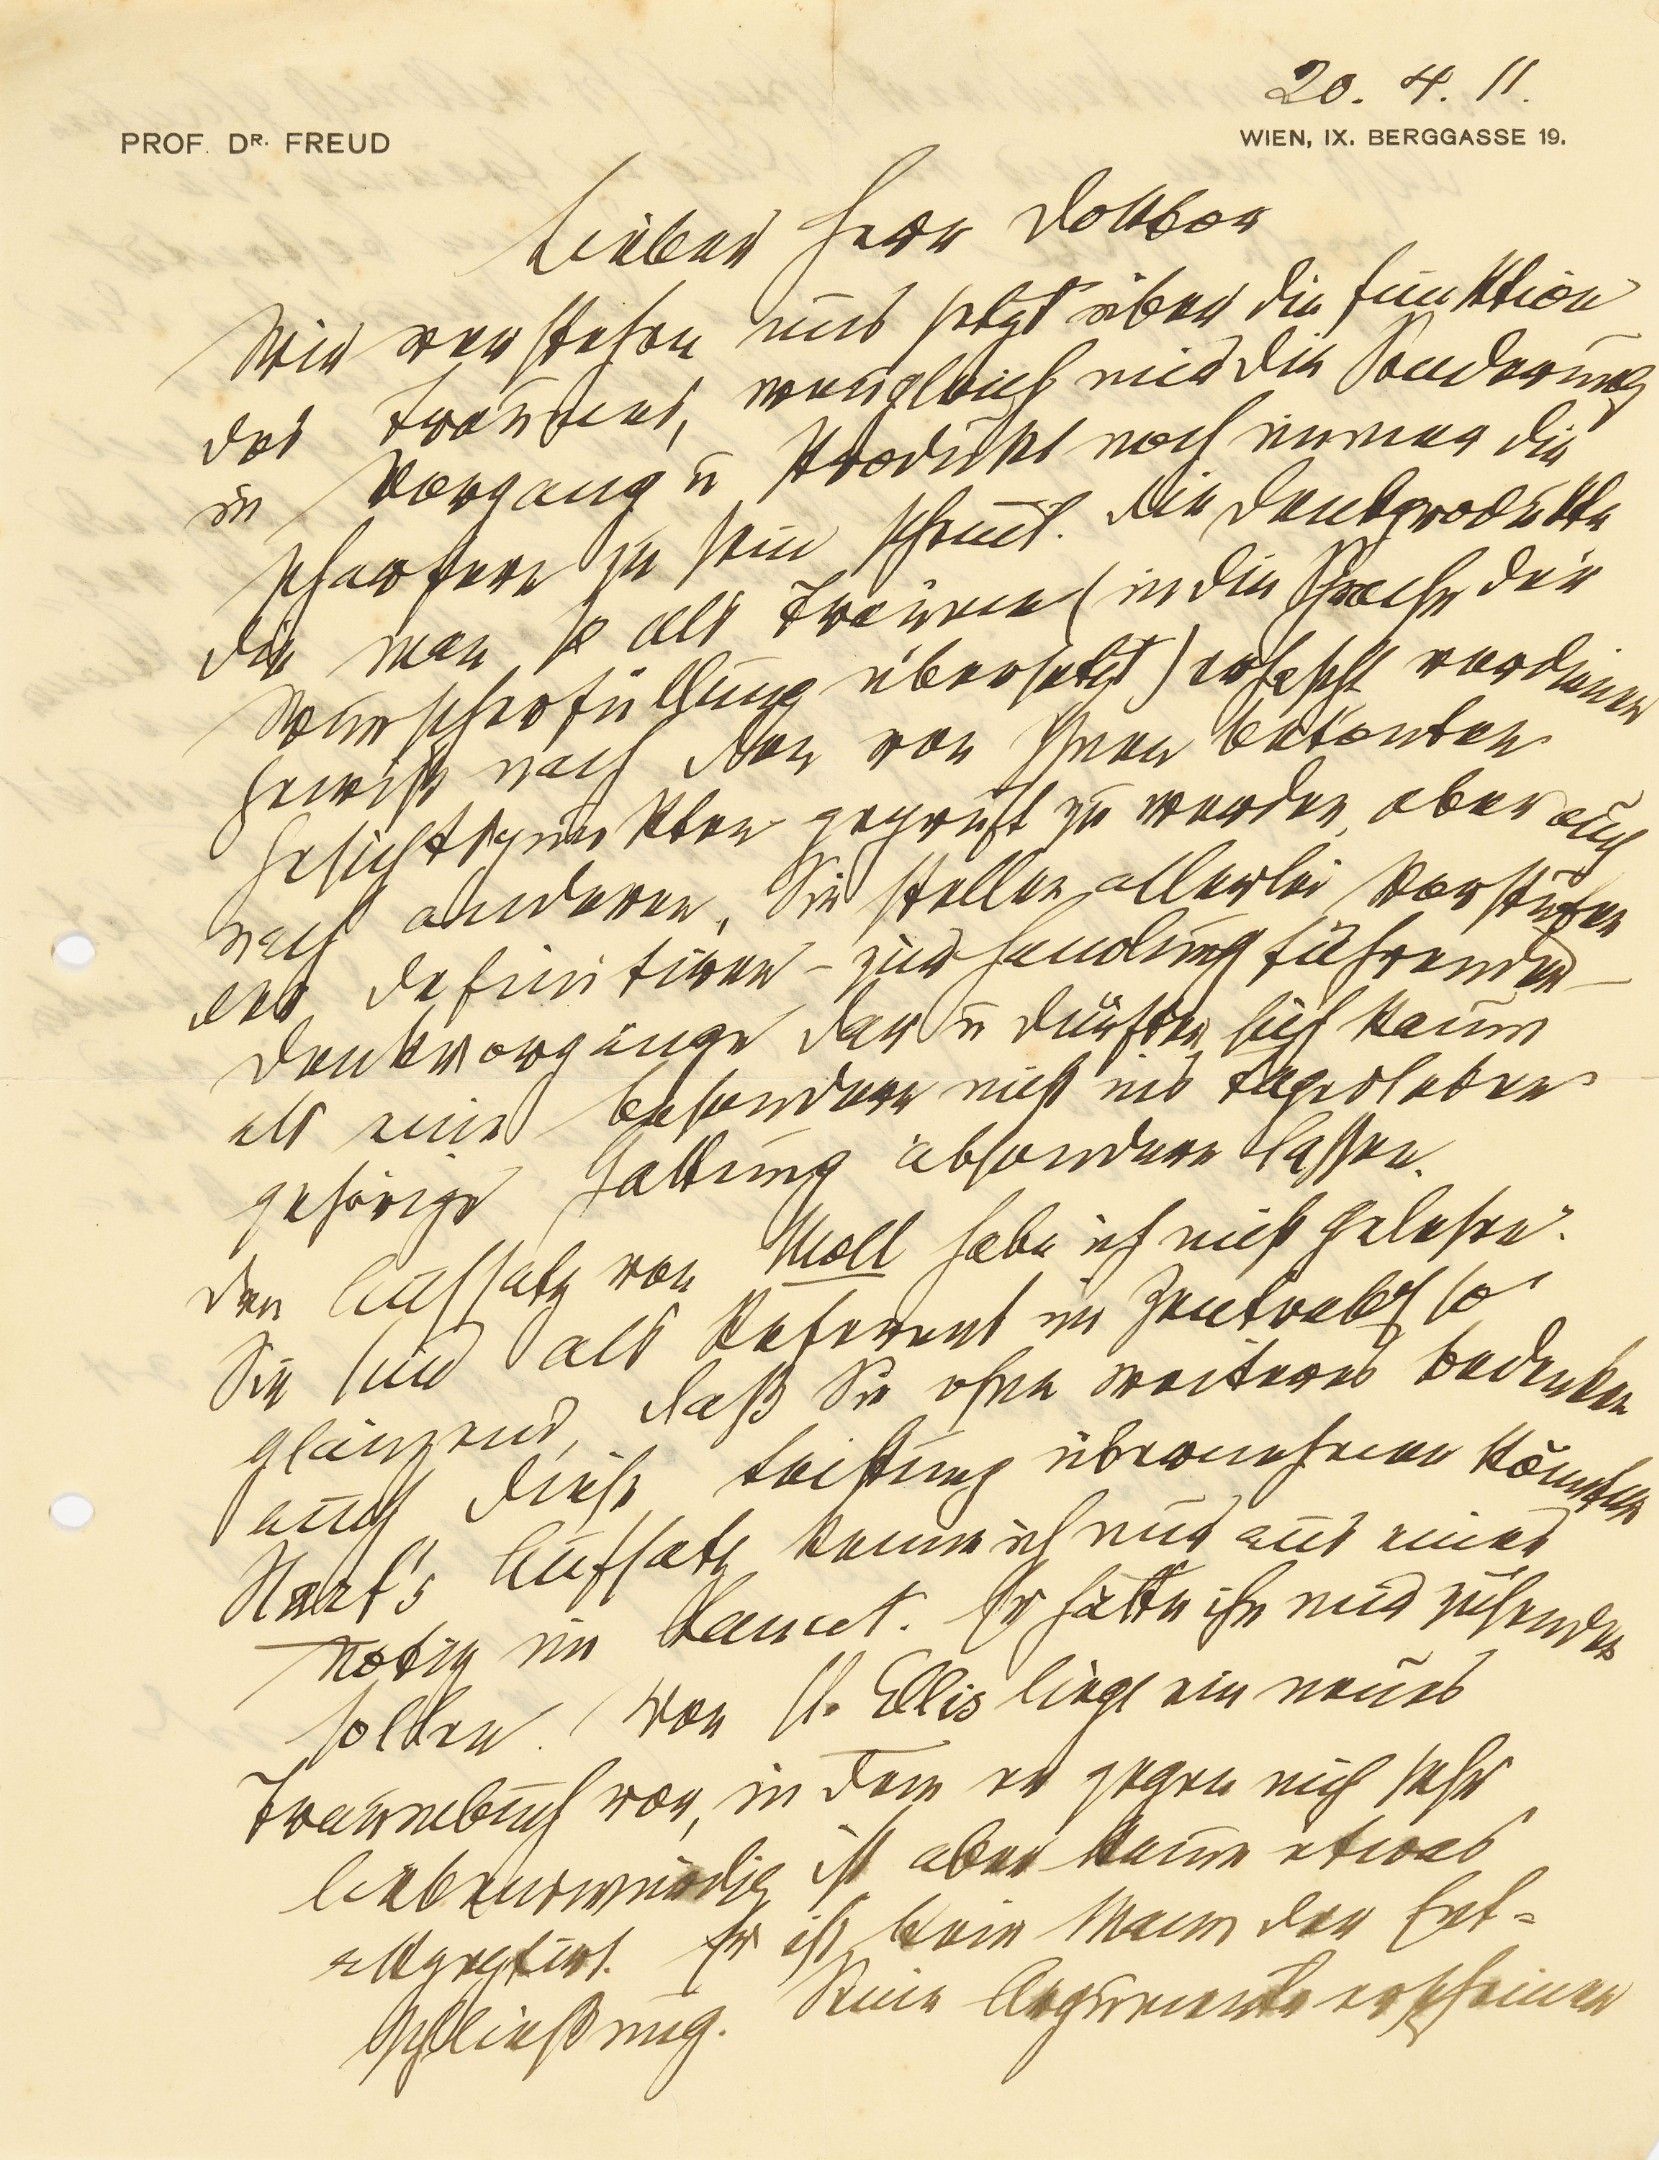 20. 4. 11.
PROF. DR. FREUD
WIEN, IX. BERGGASSE 19.
Lieber Herr Doktor
Wir verstehen uns jetzt über die Funktion
des Traumes, wenngleich mir die Sonderung
in Vorgang u Produkt noch immer die
schärfere zu sein scheint. Die Denkprodukte
die man so als Träume (in die Sprache der
Wunscherfüllung übersetzt) erhascht verdienen
gewiß nach den von Ihnen betonten
Gesichtspunkten geprüft zu werden, aber auch
nach anderen. Sie stellen allerlei Vorstufen
der definitiven – zur Handlung führenden –
Denkvorgänge dar u dürften sich kaum
als eine besondere nicht ins Tagesleben
gehörige Gattung absondern lassen.
Den Aufsatz von Moll habe ich nicht gelesen.
Sie sind als Referent im Zentralbl so
glänzend, daß Sie ohne weiteres Bedenken
auch diese Leistung übernehmen könnten
Hart's Aufsatz kenne ich nur aus einer
Notiz im Lancet. Er hätte ihn mir zusenden
sollen. Von H. Ellis liegt ein neues
Traumbuch vor, in dem er gegen mich sehr
liebenswürdig ist aber kaum etwas
akzeptirt. Er ist kein Mann der Ent-
schließung. Seine Argumente erscheinen